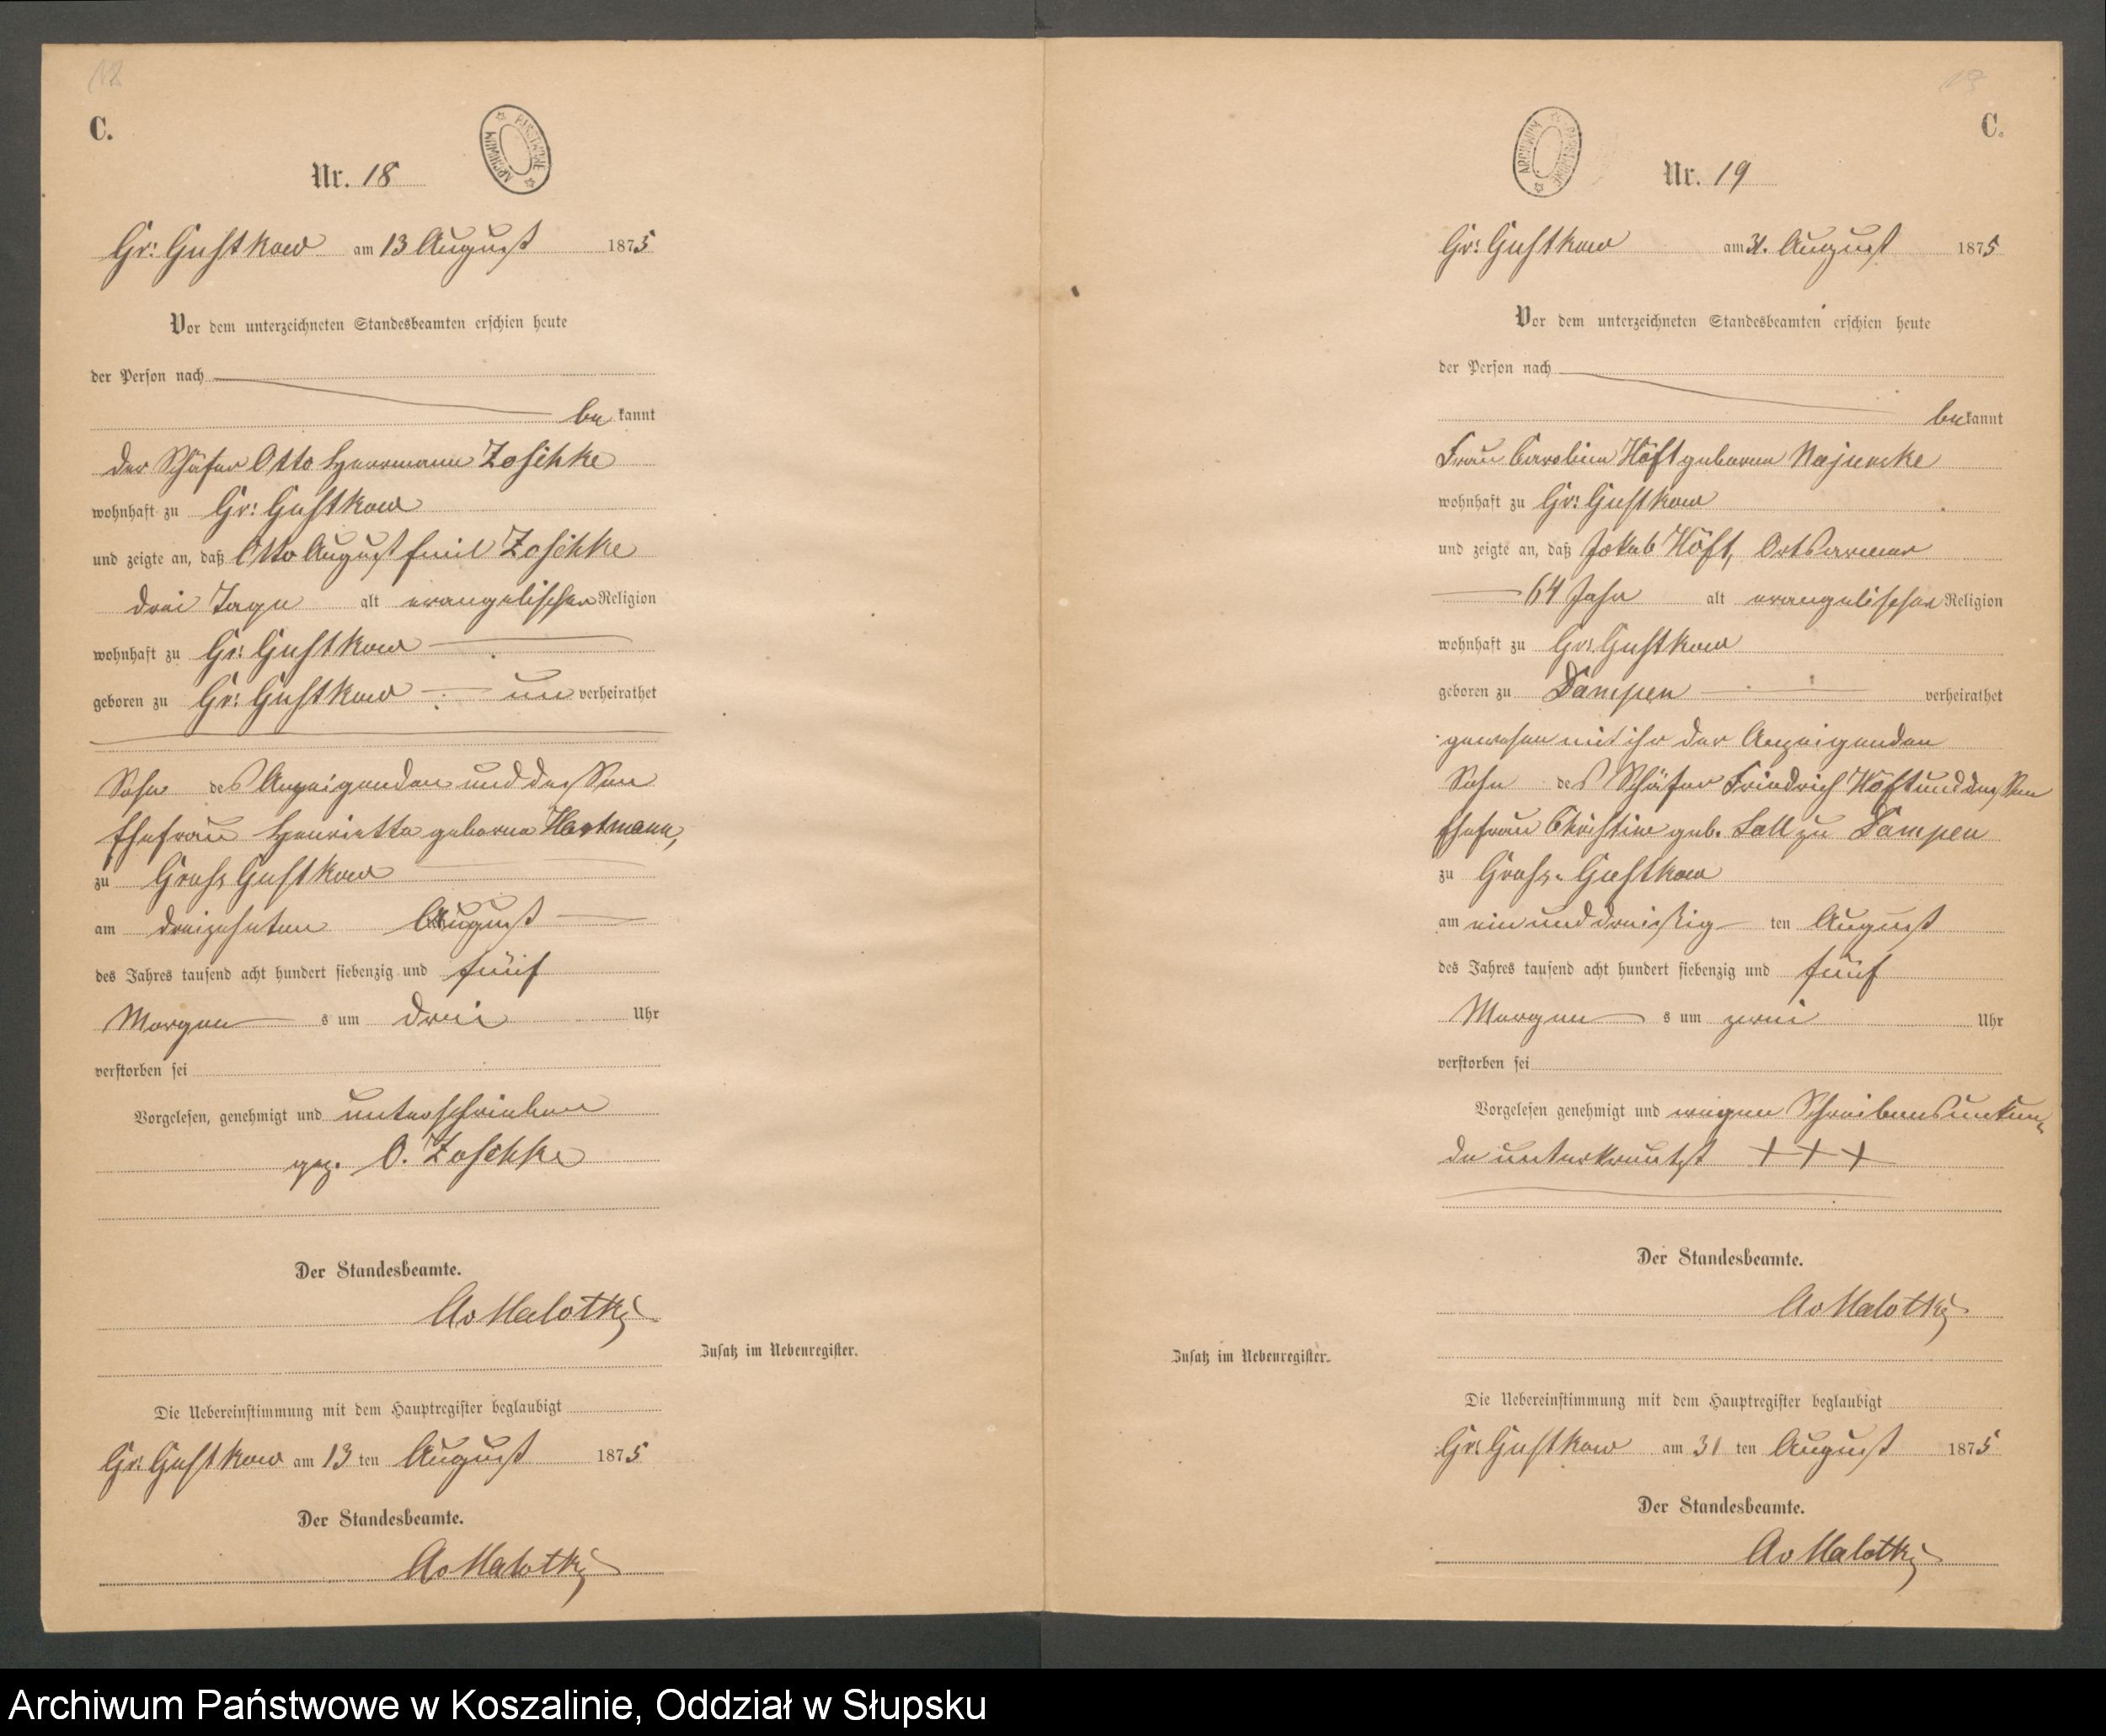 12
C.
ARCHIWUM PAŃSTWOWE
Nr. 18
Gr: Gustkow am 13 August 1875
Vor dem unterzeichneten Standesbeamten erschien heute
der Person nach
be kannt
der Schäfer Otto Herrmann Zoschke
wohnhaft zu Gr: Gustkow
und zeigte an, daß Otto August Emil Zoschke
drei Tage alt evangelischer Religion
wohnhaft zu Gr: Gustkow
geboren zu Gr: Gustkow un verheirathet
Sohn des Anzeigenden und dessen
Ehefrau Henriette geborne Hartmann,
zu Gross Gustkow
am dreizehnten August
des Jahres tausend acht hundert siebenzig und fünf
Morgen s um drei Uhr
verstorben sei
Vorgelesen, genehmigt und unterschrieben
gez. O. Zoschke
Der Standesbeamte.
Av Malotki
Zusatz im Nebenregister.
Die Uebereinstimmung mit dem Hauptregister beglaubigt
Gr: Gustkow am 13 ten August 1875
Der Standesbeamte.
Av Malotki
C.
ARCHIWUM PAŃSTWOWE
Nr. 19
Gr: Gustkow am 31. August 1875
Vor dem unterzeichneten Standesbeamten erschien heute
der Person nach
be kannt
Frau Caroline Höft geborne
wohnhaft zu Gr: Gustkow
und zeigte an, daß Jakob Höft, Ortsarmer
64 Jahr alt evangelischer Religion
wohnhaft zu Gr: Gustkow
geboren zu Dampen verheirathet
gewesen mit ihr der Anzeigenden
Sohn des Schäfer Friedrich Höft und dessen
Ehefrau Christine geb. zu Dampen
zu Gross- Gustkow
am ein und dreissig ten August
des Jahres tausend acht hundert siebenzig und fünf
Morgen s um zwei Uhr
verstorben sei
Vorgelesen genehmigt und wegen Schreibensunkun-
de unterkreutzt + + +
Der Standesbeamte.
Av Malotki
Zusatz im Nebenregister.
Die Uebereinstimmung mit dem Hauptregister beglaubigt
Gr: Gustkow am 31 ten August 1875
Der Standesbeamte.
Av Malotki
Archiwum Państwowe w Koszalinie, Oddział w Słupsku